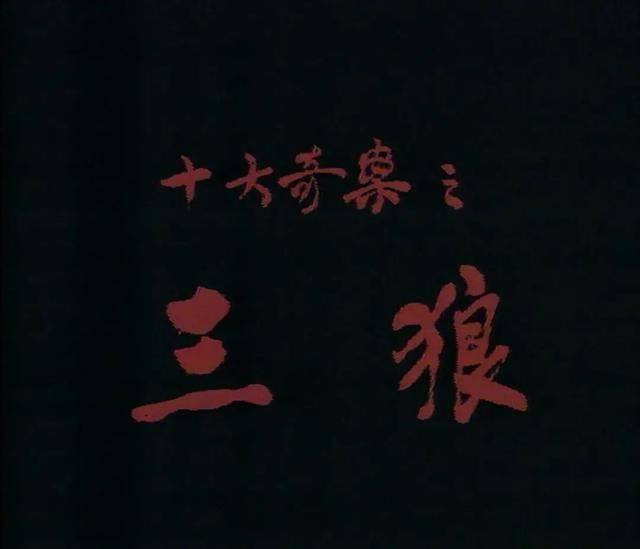 十大奇案之
三狼